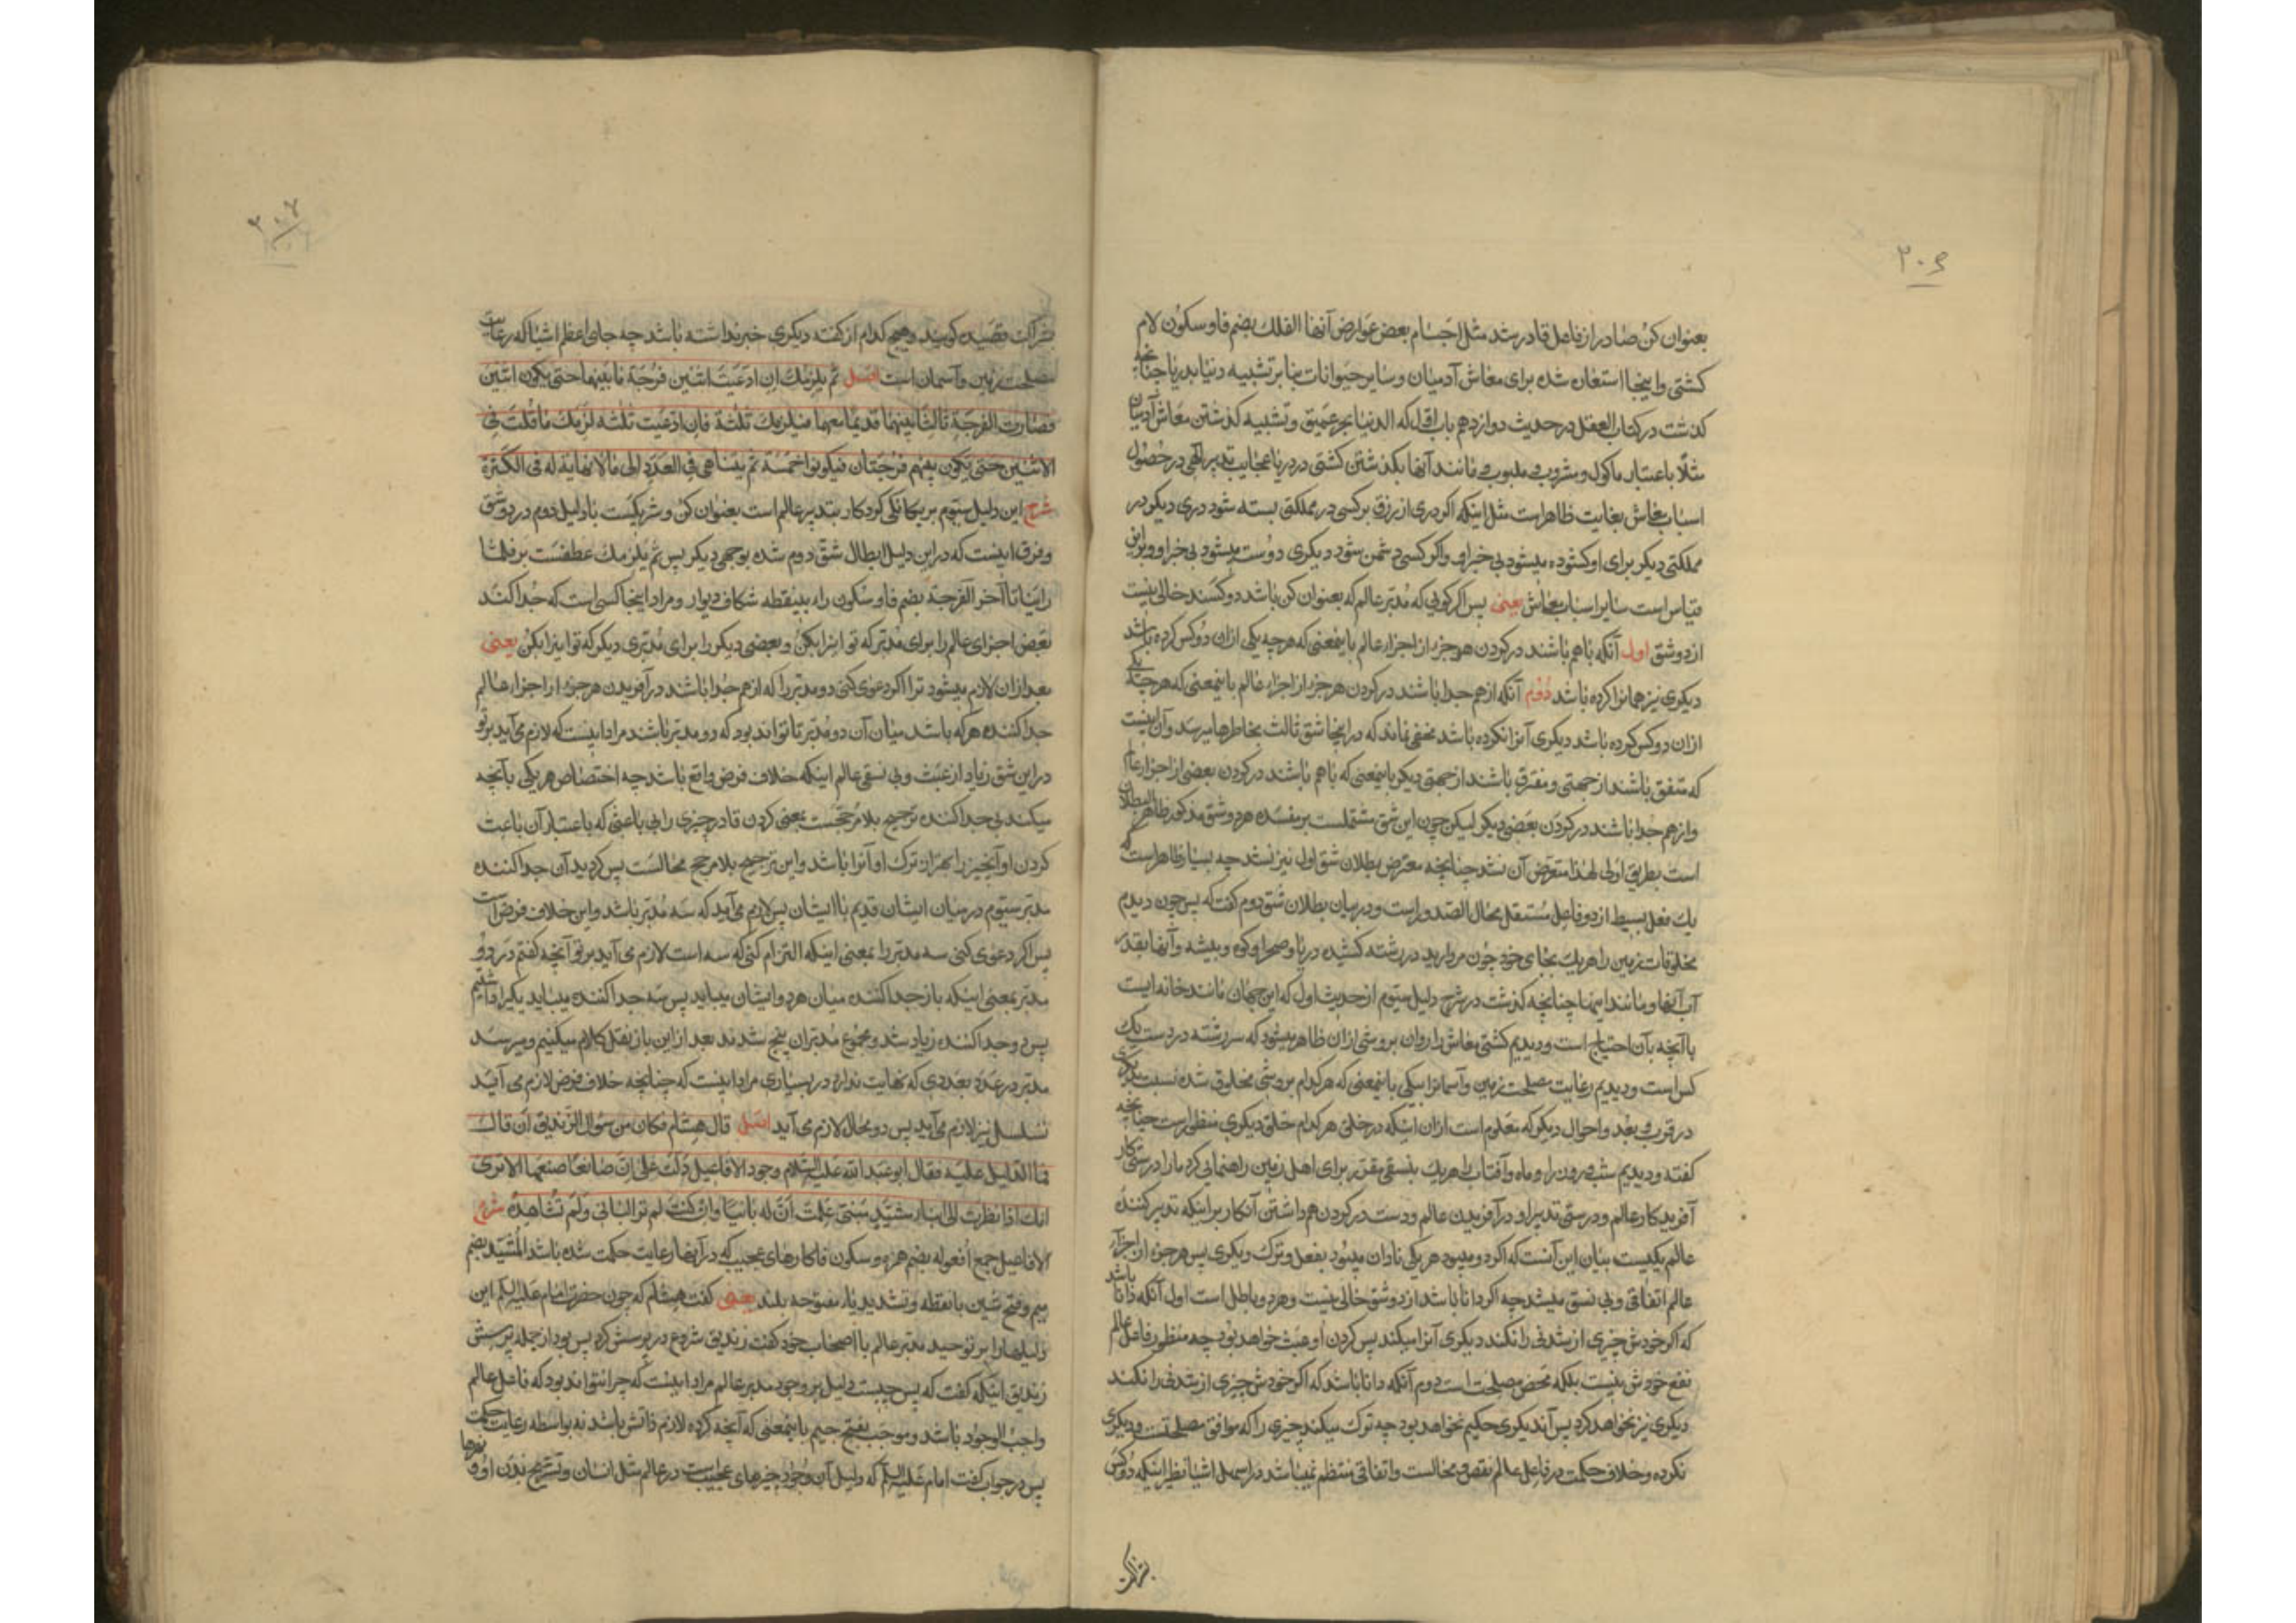 ۳۰۶
بعنوان کن صادر از فاعل قادر شد مثل اجسام بعض عوارض آنها الفلك بضم فا و سکون لام
کشتی و اینجا استعاره شده برای معاش آدمیان و سایر حیوانات بنا بر تشبیه دنیا بدریا چنانچه
کذشت در کتاب العقل در حدیث دوازدهم باب اول که الدنیا بحر عمیق و تشبیه کذشتن معاش آدمیان
مثلا باعتبار ماکول و مشروب و ملبوس و مانند آنها بکذشتن کشتی در دریا عجایب تدبیر آلهی در حصول
اسباب معاش بغایت ظاهر است مثل اینکه اکر دری از رزق بر کسی در مملکتی بسته شود دری دیکر در
مملکتی دیکر برای او کشوده میشود بی خبر او و اکر کسی دشمن شود دیکری دوست میشود بی خبر او و برین
قیاس است سایر اسباب معاش یعنی پس اکر کویی که مدبر عالم که بعنوان کن باشد دو کسند خالی نیست
از دو شق اول آنکه با هم باشند در کردن هر جزء از اجزاء عالم باینمعنی که هر چه یکی ازان دو کس کرده باشد
دیکری نیز همانرا کرده باشد دوم آنکه از هم جدا باشند در کردن هر جزء از اجزاء عالم باینمعنی که هر چه یکی
ازان دو کس کرده باشد دیکری آنرا نکرده باشد مخفی نماند که در اینجا شق ثالث بخاطرها میرسد و آن اینست
که متفق باشند از جهتی و مفترق باشند از جهتی دیکر باینمعنی که با هم باشند در کردن بعضی از اجزاء عالم
و از هم جدا باشند در کردن بعضی دیکر لیکن چون این شق مشتملست بر مفسده هر دو شق مذکور ظاهر البطلان
است بطریق اولی لهذا متعرض آن نشد چنانچه معترض بطلان شق اول نیز نشد چه بسیار ظاهر است که
یك فعل بسیط از دو فاعل مستقل محال الصدور است و در بیان بطلان شق دوم کفت که پس چون دیدم
مخلوقات زمین را هر یك بجای خود چون مروارید در رشته کشیده دریا و صحرا و کوه و بیشه و آنها بقدر
آب آنها و مانند اینها چنانچه کذشت در شرح دلیل سیوم از حدیث اول که این جهان مانند خانه ایست
با آنچه بآن احتیاج است و دیدیم کشتی معاش را روان بروشی ازان ظاهر میشود که سررشته در دست یك
کس است و دیدیم رعایت مصلحت زمین و آسمانرا بیکی باینمعنی که هر کدام بروشی مخلوق شده نسبت بدیکری
در قرب و بعد و احوال دیکر که معلوم است ازان اینکه در خلق هر کدام خلق دیکری منظور است چنانچه
کفته و دیدیم شب و روز را و ماه و آفتاب را هر یك بنسقی مقرر برای اهل زمین راهنمایی کرد ما را درستی کار
آفریدکار عالم و درستی تدبیر او در آفریدن عالم و دست در کردن هم داشتن آنکار بر اینکه تدبیر کننده
عالم یکیست بیان این آنست که اکر دو میبود هر یکی نادان میبود بفعل و ترك دیکری پس هر جزء از اجزاء
عالم اتفاقی و بی نسق میشد چه اکر دانا باشد از دو شق خالی نیست و هر دو باطل است اول آنکه دانا باشد
که اکر خودش چیزی از شدنی را نکند دیکری آنرا میکند پس کردن او عبث خواهد بود چه منظور فاعل عالم
نفع خودش نیست بلکه محض مصلحت است دوم آنکه دانا باشد که اکر خودش چیزی از شدنی را نکند
دیکری نیز نخواهد کرد پس آندیکری حکیم نخواهد بود چه ترك میکند چیزی را که موافق مصلحتست و دیکری
نکرده و خلاف حکمت در فاعل عالم نقص و محالست و اتفاقی منتظم نمیباشد در اسهل اشیا نظیر اینکه دو کس
بشراکت
۳۰۷
بشراکت قصیده کویند و هیچ کدام از کفته دیکری خبر نداشته باشد چه جای اعظم اشیا که رعایت
مصلحت زمین و آسمان است اصل ثم یلزمك ان ادعیت اثنین فرجة ما بینهما حتی یکون اثنین
فصارت الفرجة ثالثا بینهما قدیما معهما فیلزمك ثلثة فان ادعیت ثلثة لزمك ما قلت فی
الاثنین حتی یکون بینهم فرجتان فیکونوا خمسة ثم یتناهی فی العدد الی ما لا نهایة له فی الکثرة
شرح این دلیل سیوم بر یکانکی کردکار بتدبیر عالم است بعنوان کن و شریکست با دلیل دوم در دو شق
و فرق اینست که در این دلیل ابطال شق دوم شده بوجهی دیکر پس ثم یلزمك عطفست بر فلما
راینا تا آخر الفرجة بضم فا و سکون راء بینقطه شکاف دیوار و مراد اینجا کسی است که جدا کند
بعض اجزای عالم را برای مدبر که تو اینرا بکن و بعضی دیکر را برای مدبری دیکر که تو اینرا بکن یعنی
بعد ازان لازم میشود ترا اکر دعوی کنی دو مدبر را که از هم جدا باشند در آفریدن هر جزء از اجزاء عالم
جدا کننده هر که باشد میان آن دو مدبر تا تواند بود که دو مدبر باشند مراد اینست که لازم می آید بر تو
در این شق زیاد از عبث و بی نسقی عالم اینکه خلاف فرض واقع باشد چه اختصاص هر یکی بآنچه
میکند بی جدا کننده ترجیح بلا مرجحست یعنی کردن قادر چیزی را بی باعثی که باعتبار آن باعث
کردن او آنچیز را بهتر از ترك او آنرا باشد و این ترجیح بلا مرجح محالست پس کردید آن جدا کننده
مدبر سیوم در میان ایشان قدیم با ایشان پس لازم می آید که سه مدبر باشد و این خلاف فرض است
پس اکر دعوی کنی سه مدبر را بمعنی اینکه التزام کنی که سه است لازم می آید بر تو آنچه کفتم در دو
مدبر بمعنی اینکه باز جدا کننده میان هر دو ایشان میباید پس سه جدا کننده میباید یکیرا داشتیم
پس دو جدا کننده زیاد شد و مجموع مدبران پنج شدند بعد از این باز نقل کلام میکنیم و میرسد
مدبر در عدد بعددی که نهایت ندارد در بسیاری مراد اینست که چنانچه خلاف فرض لازم می آید
تسلسل نیز لازم می آید پس دو محال لازم می آید اصل قال هشام فکان من سؤال الزندیق أن قال
فما الدلیل علیه فقال ابو عبد الله علیه السلام وجود الافاعیل دلت علی ان صانعا صنعها الا تری
انك اذا نظرت الی بناء مشید مبنی علمت أن له بانیا و ان کنت لم تر البانی و لم تشاهده شرح
الافاعیل جمع أفعوله بضم همزه و سکون فا کارهای عجیب که در آنها رعایت حکمت شده باشد المشید بضم
میم و فتح شین با نقطه و تشدید یاء مفتوحه بلند یعنی کفت هشام که چون حضرت امام علیه السلم این
دلیلها را بر توحید مدبر عالم با اصحاب خود کفت زندیق شروع در پرسش کرد پس بود از جمله پرسش
زندیق اینکه کفت که پس چیست دلیل بر وجود مدبر عالم مراد اینست که چرا نتواند بود که فاعل عالم
واجب الوجود باشد و موجب بفتح جیم باینمعنی که آنچه کرده لازم ذاتش باشد نه بواسطه رعایت حکمت
پس در جواب کفت امام علیه السلم که دلیل آن وجود چیزهای عجیبست در عالم مثل انسان و تشریح بدن او و